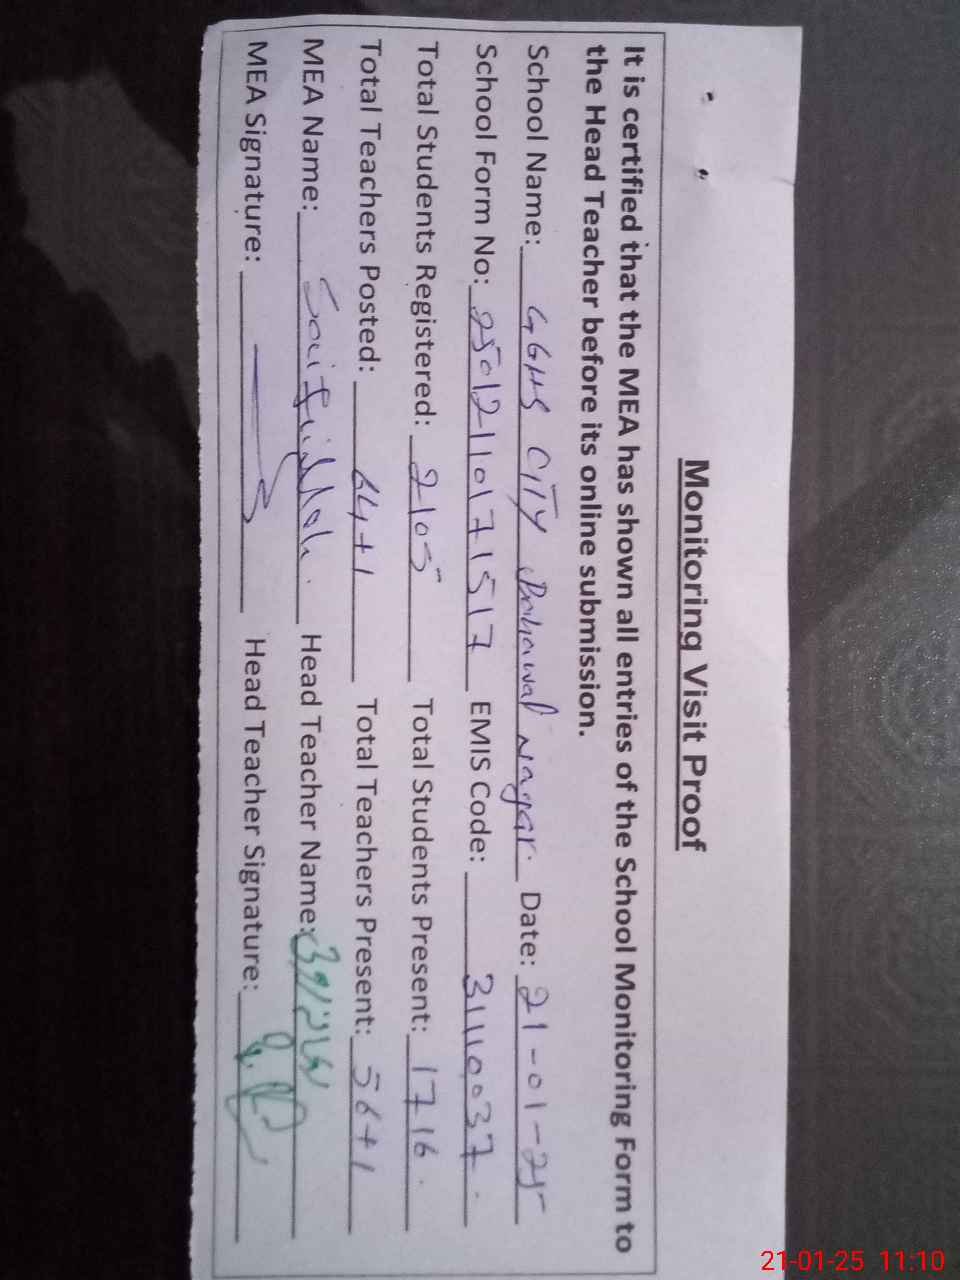 Monitoring Visit Proof
It is certified that the MEA has shown all entries of the School Monitoring Form to
the Head Teacher before its online submission.
School Name: GGHS CITY Bahawal Nagar. Date: 21-01-25
School Form No: 25012110171517 EMIS Code: 31110037.
Total Students Registered: 2105 Total Students Present: 1716.
Total Teachers Posted: 64+1 Total Teachers Present: 56+1
MEA Name: Saif Ullah. Head Teacher Name:
MEA Signature: Head Teacher Signature:
21-01-25 11:10